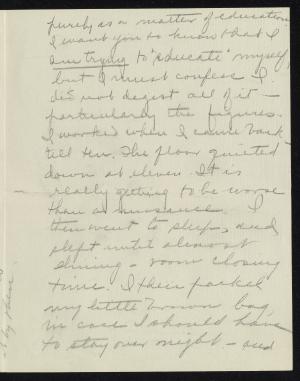 purely as a matter of education.
I want you to know that I
am trying to "educate" myself,
but I must confess I
did not digest all of it —
particularly the figures.
I worked when I came back
till ten. The floor quieted
down at eleven. It is
really getting to be worse
than a nuisance. I
then went to sleep, and
slept until almost
dining-room closing
time. I then packed
my little brown bag,
in case I should have
to stay over night — and